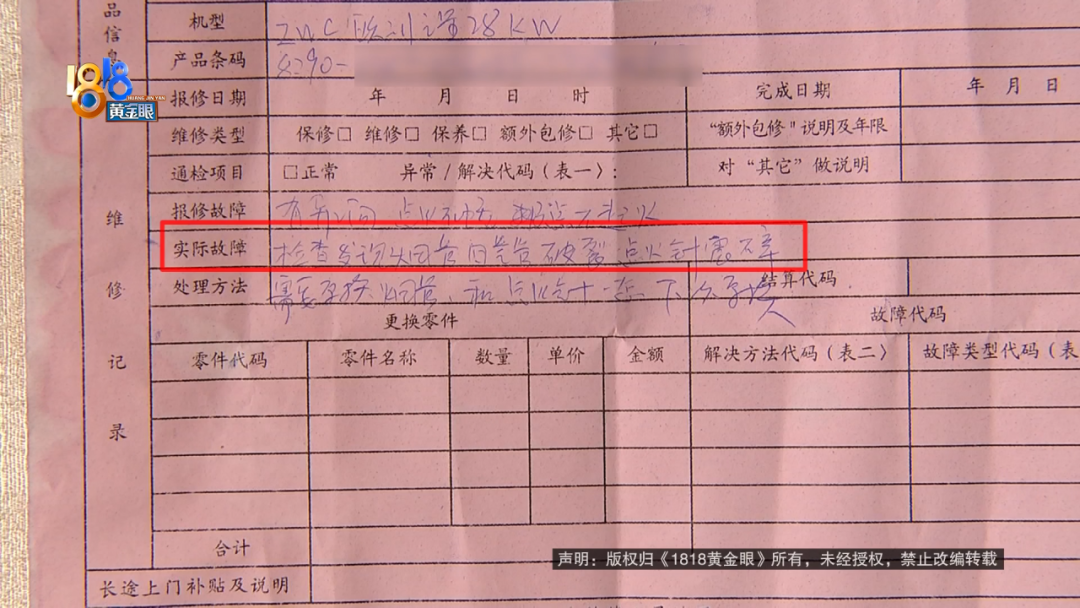 品信息
机型 ZWC 欧洲之星28KW
产品条码 8290-
1818
黄金眼
报修日期 年 月 日 时 完成日期 年 月 日
维修类型 保修□ 维修□ 保养□ 额外包修□ 其它□ “额外包修”说明及年限
通检项目 □正常 异常/解决代码(表一): 对“其它”做说明
维修记录
报修故障 点火 点不起火
实际故障 检查发现烟管内芯管破裂 点火针
处理方法 需要更换烟管、和点火针 下次 结算代码
更换零件 故障代码
零件代码 零件名称 数量 单价 金额 解决方法代码(表二) 故障类型代码(表
合计
声明:版权归《1818黄金眼》所有,未经授权,禁止改编转载
长途上门补贴及说明